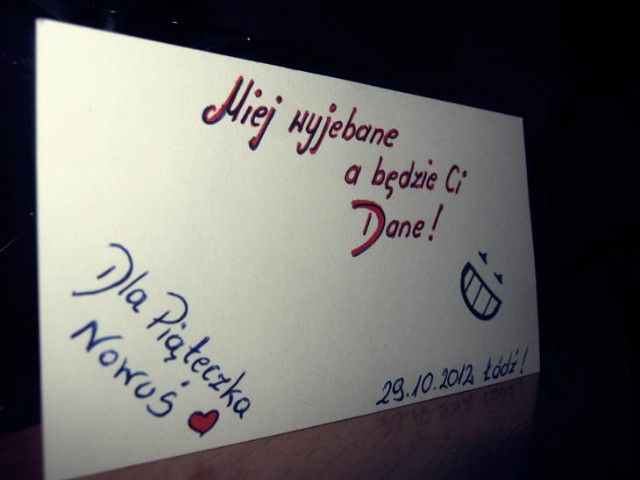 Miej wyjebane
a będzie Ci
Dane!
Dla Piąteczka
Nowuś
29.10.2012 Łódź!